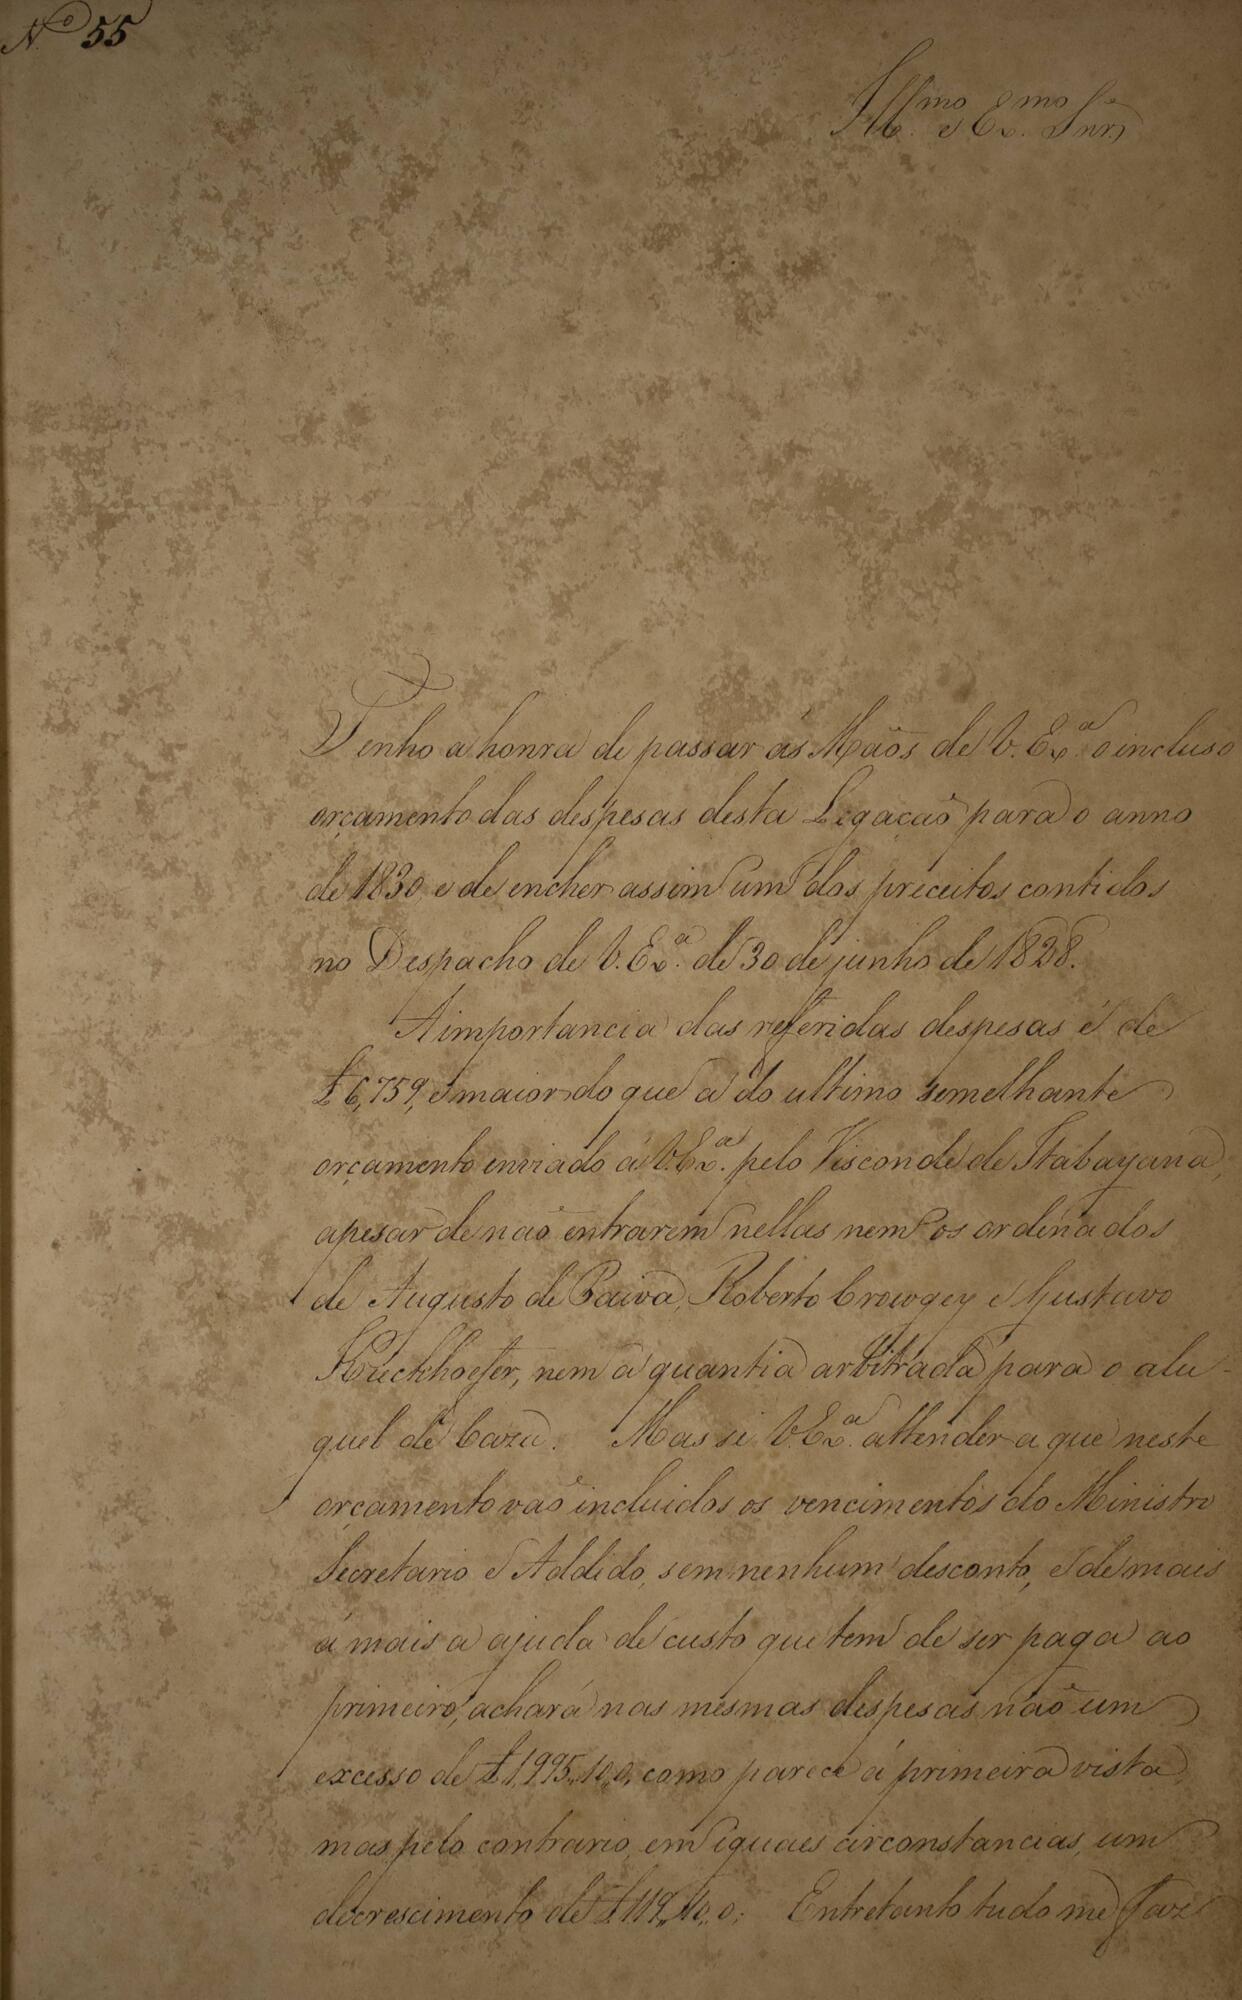 Nº 55
Illmo e Exmo Snr
Tenho a honra de passar ás Mãos de V. Exª. o incluso
orçamento das despesas desta Legação para o anno
de 1830 e de encher assim um dos preceitos contidos
no Despacho de V. Exª. de 30 de junho de 1828.
A importancia das referidas despesas é de
£6,759, e maior do que a do ultimo semelhante
orçamento enviado a V. Exª. pelo Visconde de Itabayana,
apesar de não entrarem nellas nem os ordenados
de Augusto de Paiva, Roberto Crowgey e Gustavo
nem a quantia arbitrada para o alu-
guel de Caza. Mas si V. Exª. attender a que neste
orçamento vão incluidos os vencimentos do Ministro
Secretario e Addido, sem nenhum desconto, e de mais
a mais a ajuda de custo que tem de ser paga ao
primeiro, achará nas mesmas despesas não um
excesso de £1,995,,10,,0, como parece á primeira vista,
mas pelo contrario, em iguaes circonstancias, um
decrescimento de £119,,10,,0; Entretanto tudo me faz